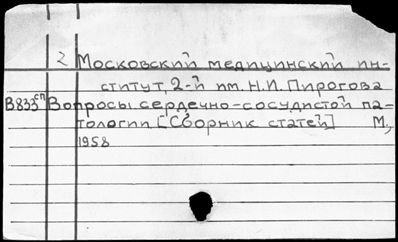 2 Московский медицинский ин-
ститут, 2-й им. Н.И. Пирогова
В833сп Вопросы сердечно-сосудистой па-
тологии [Сборник статей] М.,
1958